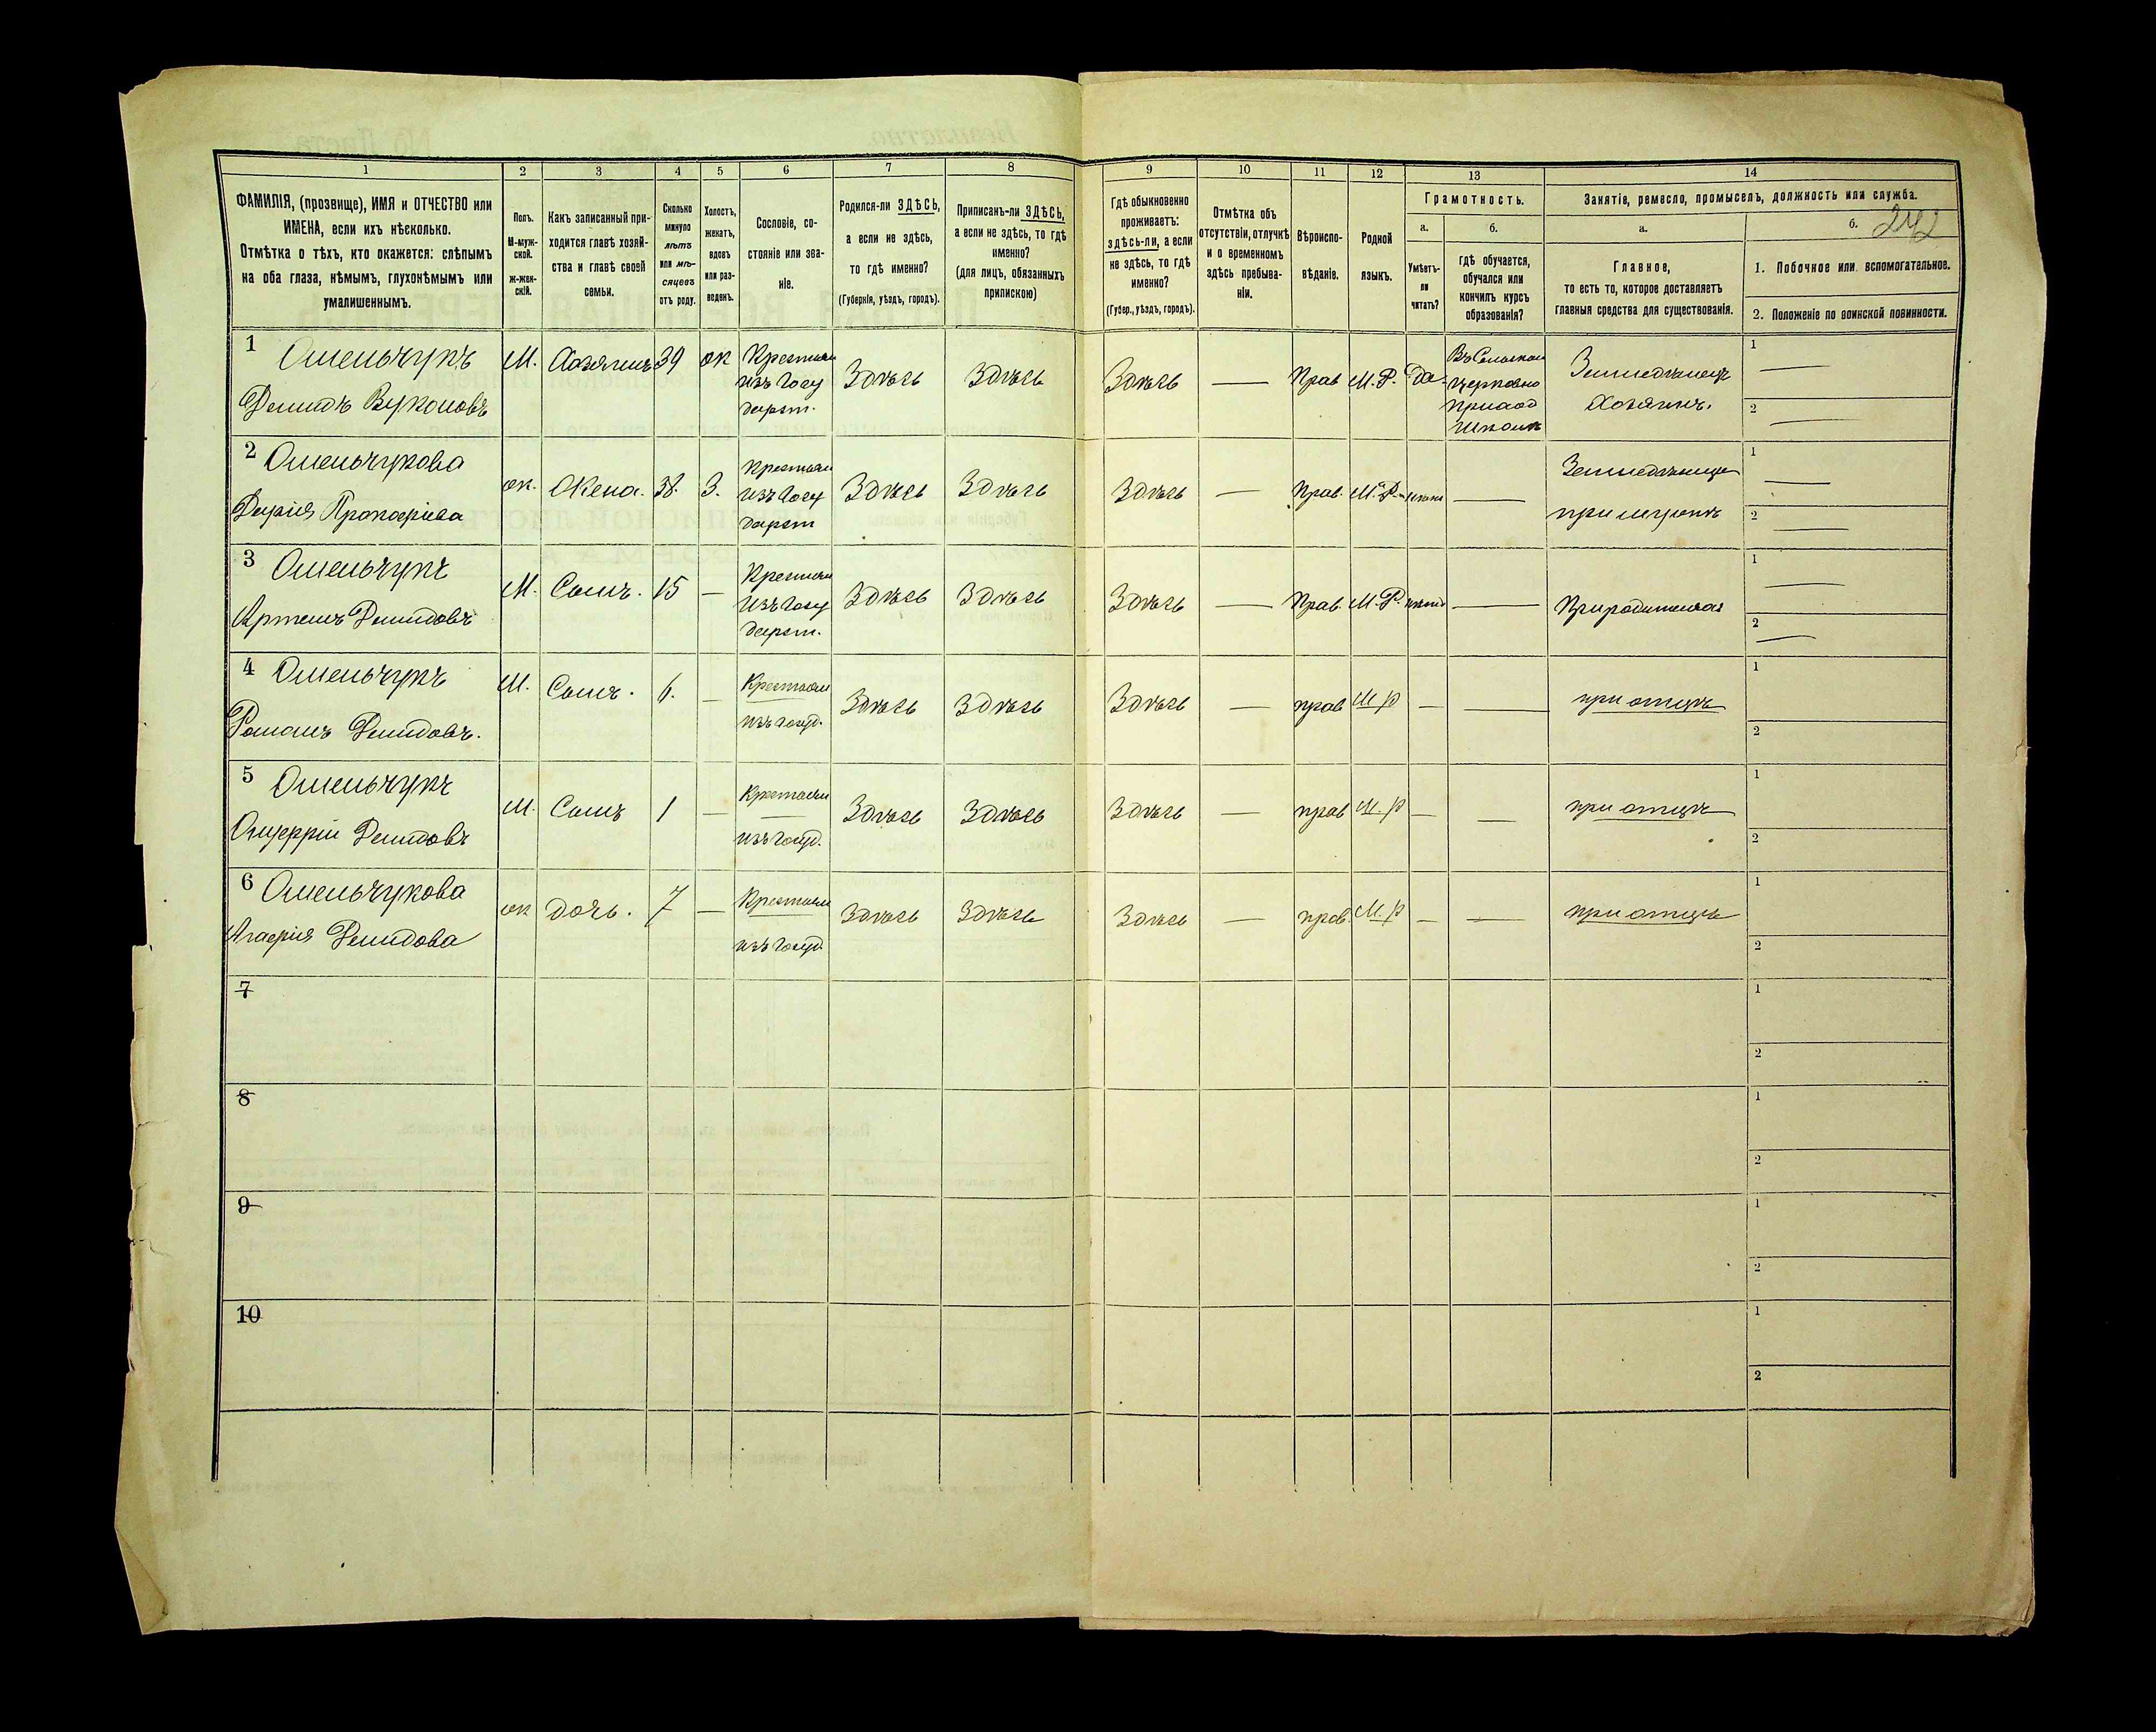 1 2 3 4 5 6 7 8 9 10 11 12 13 14
ФАМИЛІЯ, (прозвище), ИМЯ и ОТЧЕСТВО или
ИМЕНА, если ихъ нѣсколько.
Отмѣтка о тѣхъ, кто окажется: слѣпымъ
на оба глаза, нѣмымъ, глухонѣмымъ или
умалишеннымъ.
Полъ.
М-муж-
ской.
ж-жен-
скій.
Какъ записанный при-
ходится главѣ хозяй-
ства и главѣ своей
семьи.
Сколько
минуло
лѣтъ
или мѣ-
сяцевъ
отъ роду.
Холостъ,
женатъ,
вдовъ
или раз-
веденъ.
Сословіе, со-
стояніе или зва-
ніе.
Родился-ли ЗДѢСЬ,
а если не здѣсь,
то гдѣ именно?
(Губернія, уѣздъ, городъ).
Приписанъ-ли ЗДѢСЬ,
а если не здѣсь, то гдѣ
именно?
(для лицъ, обязанныхъ
припискою)
Гдѣ обыкновенно
проживаетъ:
здѣсь-ли, а если
не здѣсь, то гдѣ
именно?
(Губер., уѣздъ, городъ).
Отмѣтка объ
отсутствіи, отлучкѣ
и о временномъ
здѣсь пребыва-
ніи.
Вѣроиспо-
вѣданіе.
Родной
языкъ.
Грамотность.
а.
Умѣетъ-
ли
читать?
б.
гдѣ обучается,
обучался или
кончилъ курсъ
образованія?
Занятіе, ремесло, промыселъ, должность или служба.
а.
Главное,
то есть то, которое доставляетъ
главныя средства для существованія.
б. 242
1. Побочное или вспомогательное.
2. Положеніе по воинской повинности.
1 Омельчукъ
Демидъ Вуколовъ
М. Хозяинъ 39 ж
Крестьян
изъ Госу
дарст.
Здѣсь Здѣсь Здѣсь — Прав М.Р. Да
Въ Сельской
церковно
приход
школѣ
Земледѣлецъ
Хозяинъ.
1 —
2 —
2 Омельчукова
Дарія Прокофіева
ж. Жена. 38. З.
Крестьян
изъ Госу
дарст
Здѣсь Здѣсь Здѣсь — Прав. М.Р. —
Земледѣлица
при мужѣ
1 —
2 —
3 Омельчукъ
Артемъ Демидовъ
М. Сынъ. 15 —
Крестьян
изъ Госу
дарст.
Здѣсь Здѣсь Здѣсь — Прав. М.Р. —
При родителяхъ
1 —
2 —
4 Омельчукъ
Романъ Демидовъ.
М. Сынъ. 6. —
Крестьян
изъ госуд.
Здѣсь Здѣсь Здѣсь — прав М.р — —
при отцѣ
1
2
5 Омельчукъ
Онуфрій Демидовъ
М. Сынъ 1 —
Крестьян
изъ госуд.
Здѣсь Здѣсь Здѣсь — прав М.р — —
при отцѣ
1
2
6 Омельчукова
Агафія Демидова
ж дочь. 7 —
Крестьян
изъ госуд
Здѣсь Здѣсь Здѣсь — прав. М.р — —
при отцѣ
1
2
7
1
2
8
1
2
9
1
2
10
1
2